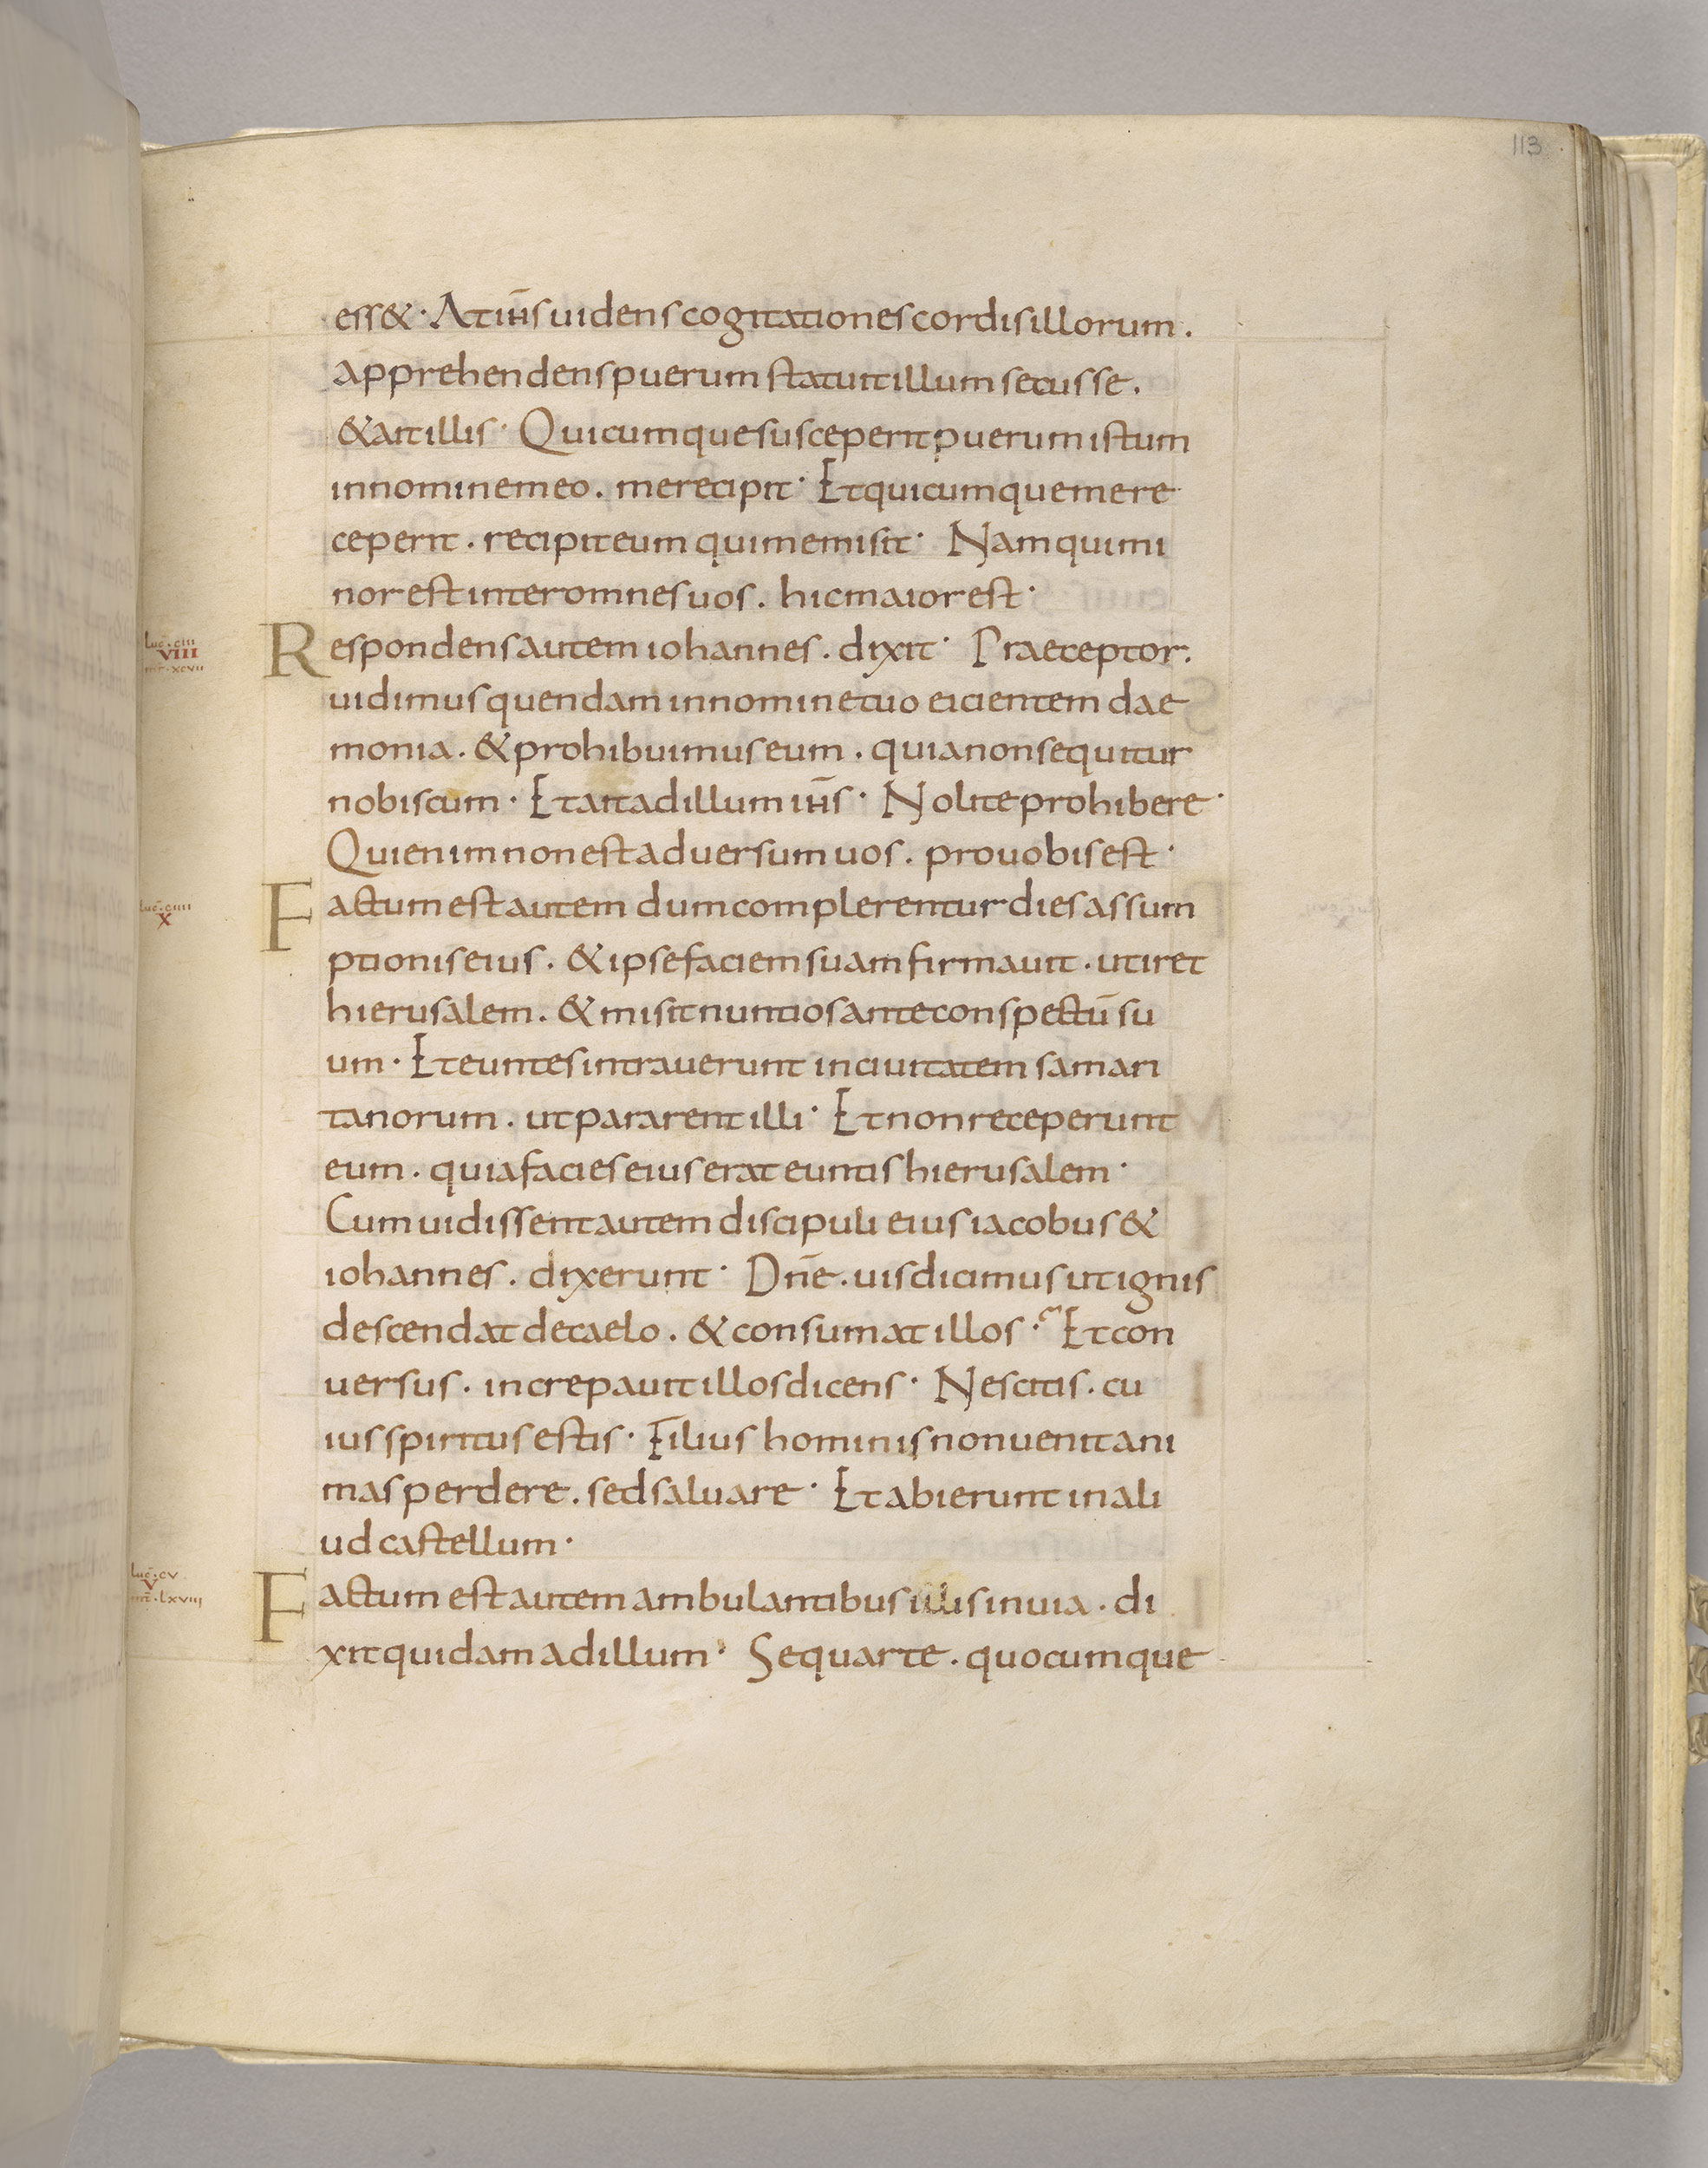 113
ess&· At ih̄s uidens cogitationes cordis illorum.
apprehendens puerum statuit illum secus se.
& ait illis· Quicumque susceperit puerum istum
in nomine meo. me recipit· Et quicumque me re
ceperit. recipit eum qui me misit· Nam qui mi
nor est inter omnes uos. hic maior est·
luc̄·ciii
VIII
mr̄·xcvii
Respondens autem iohannes. dixit· Praeceptor.
uidimus quendam in nomine tuo eicientem dae
monia. & prohibuimus eum. quia non sequitur
nobiscum· Et ait ad illum ih̄s· Nolite prohibere·
Qui enim non est aduersum uos. pro uobis est·
luc̄·ciiii
X
Factum est autem dum complerentur dies assum
ptionis eius. & ipse faciem suam firmauit. ut iret
hierusalem. & misit nuntios ante conspectū su
um· Et euntes intrauerunt in ciuitatem samari
tanorum. ut pararent illi· Et non receperunt
eum. quia facies eius erat euntis hierusalem·
Cum uidissent autem discipuli eius iacobus &
iohannes. dixerunt· Dn̄e. uis dicimus ut ignis
descendat de caelo. & consumat illos· Et con
uersus. increpauit illos dicens· Nescitis. cu
ius spiritus estis· Filius hominis non uenit ani
mas perdere. sed saluare· Et abierunt in ali
ud castellum·
luc̄·cv
V
mt̄·lxviii
Factum est autem ambulantibus illis in uia. di
xit quidam ad illum· Sequar te. quocumque